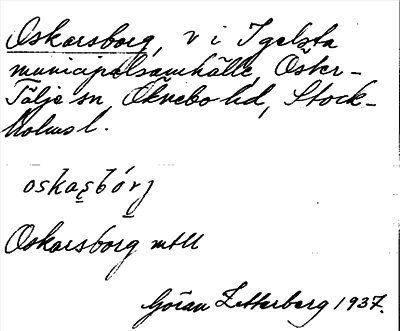 Oskarsborg, v i Igelsta
municipalsamhälle, Öster-
Tälje sn, Öknebo hd, Stock-
holms l.
oskas̱bórj
Oskarsborg mtll
Göran Zetterberg 1937.